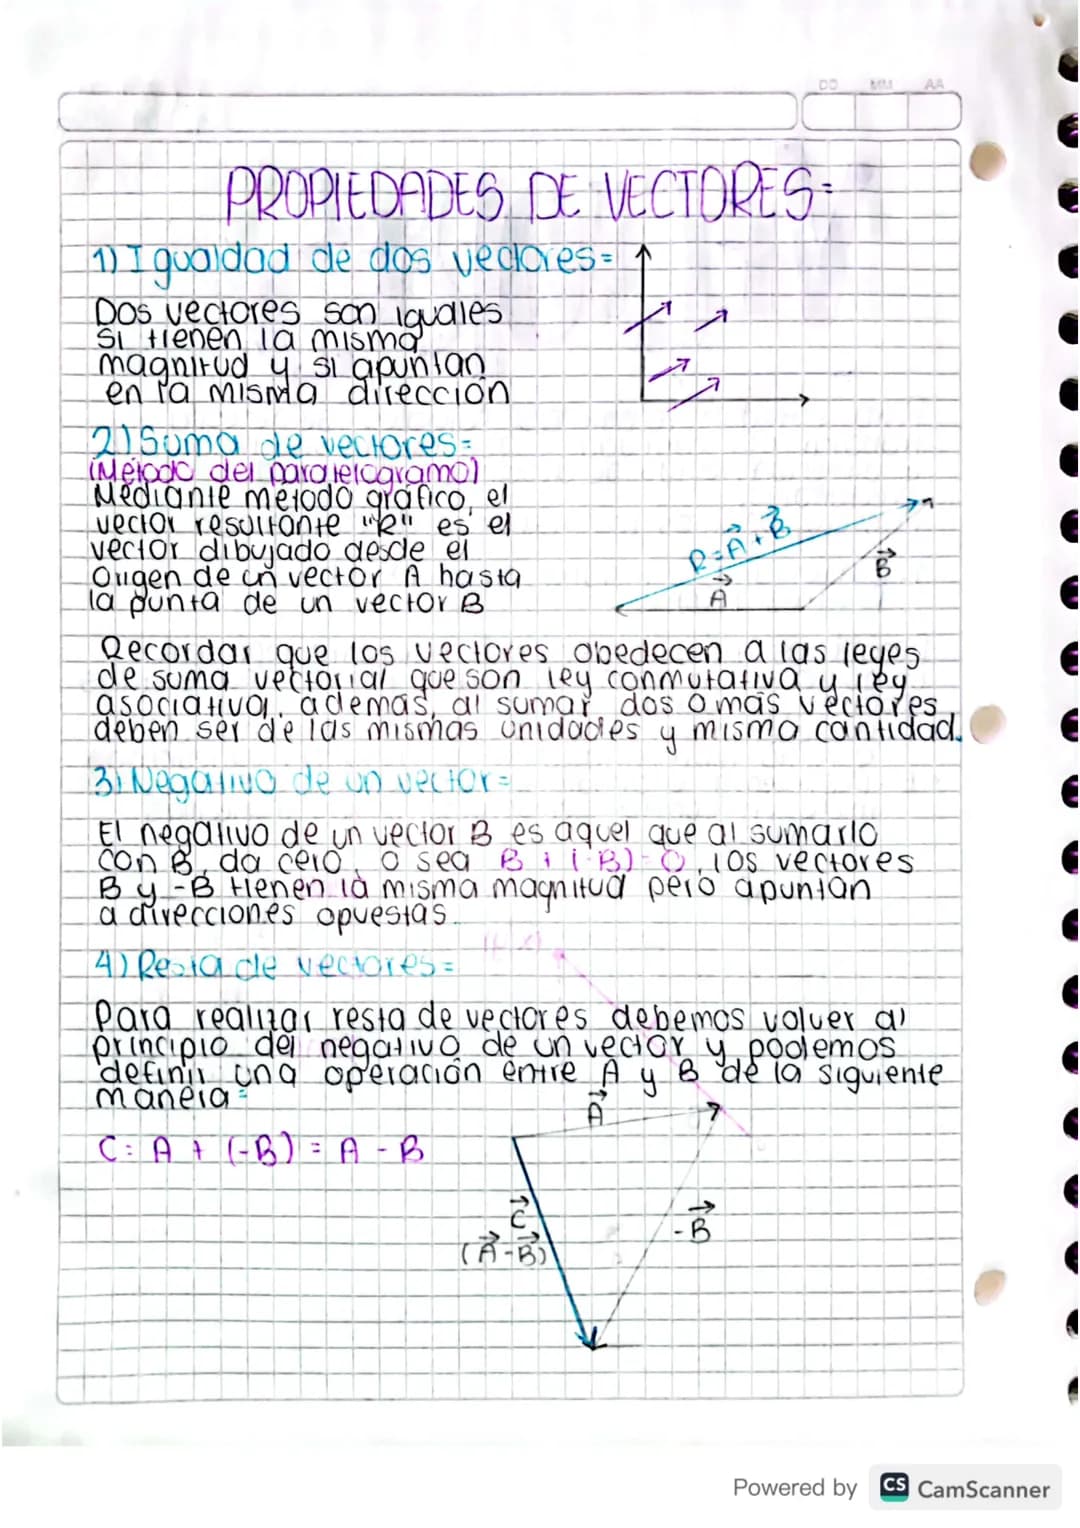 DD MM AA
PROPIEDADES DE VECTORES=
1) Igualdad de dos vectores=
Dos vectores son iguales
si tienen la misma
magnitud y si apuntan
en la misma dirección
2) Suma de vectores=
(Método del paralelogramo)
Mediante metodo gráfico, el
vector resultante "R" es el
vector dibujado desde el
Origen de un vector A hasta
la punta de un vector B
R=A⃗+B⃗
A⃗
B⃗
Recordar que los vectores obedecen a las leyes
de suma vectorial que son ley conmutativa y ley
asociativa, además, al sumar dos o más vectores
deben ser de las mismas unidades y misma cantidad.
3) Negativo de un vector=
El negativo de un vector B es aquel que al sumarlo
con B, da cero, o sea B + (-B)=0, los vectores
B y -B tienen la misma magnitud pero apuntan
a direcciones opuestas.
4) Resta de vectores=
Para realizar resta de vectores debemos volver al
principio del negativo de un vector y podemos
definir una operación entre A y B de la siguiente
manera=
C= A + (-B) = A - B
A⃗
C⃗
(A⃗-B⃗)
-B⃗
Powered by CS CamScanner